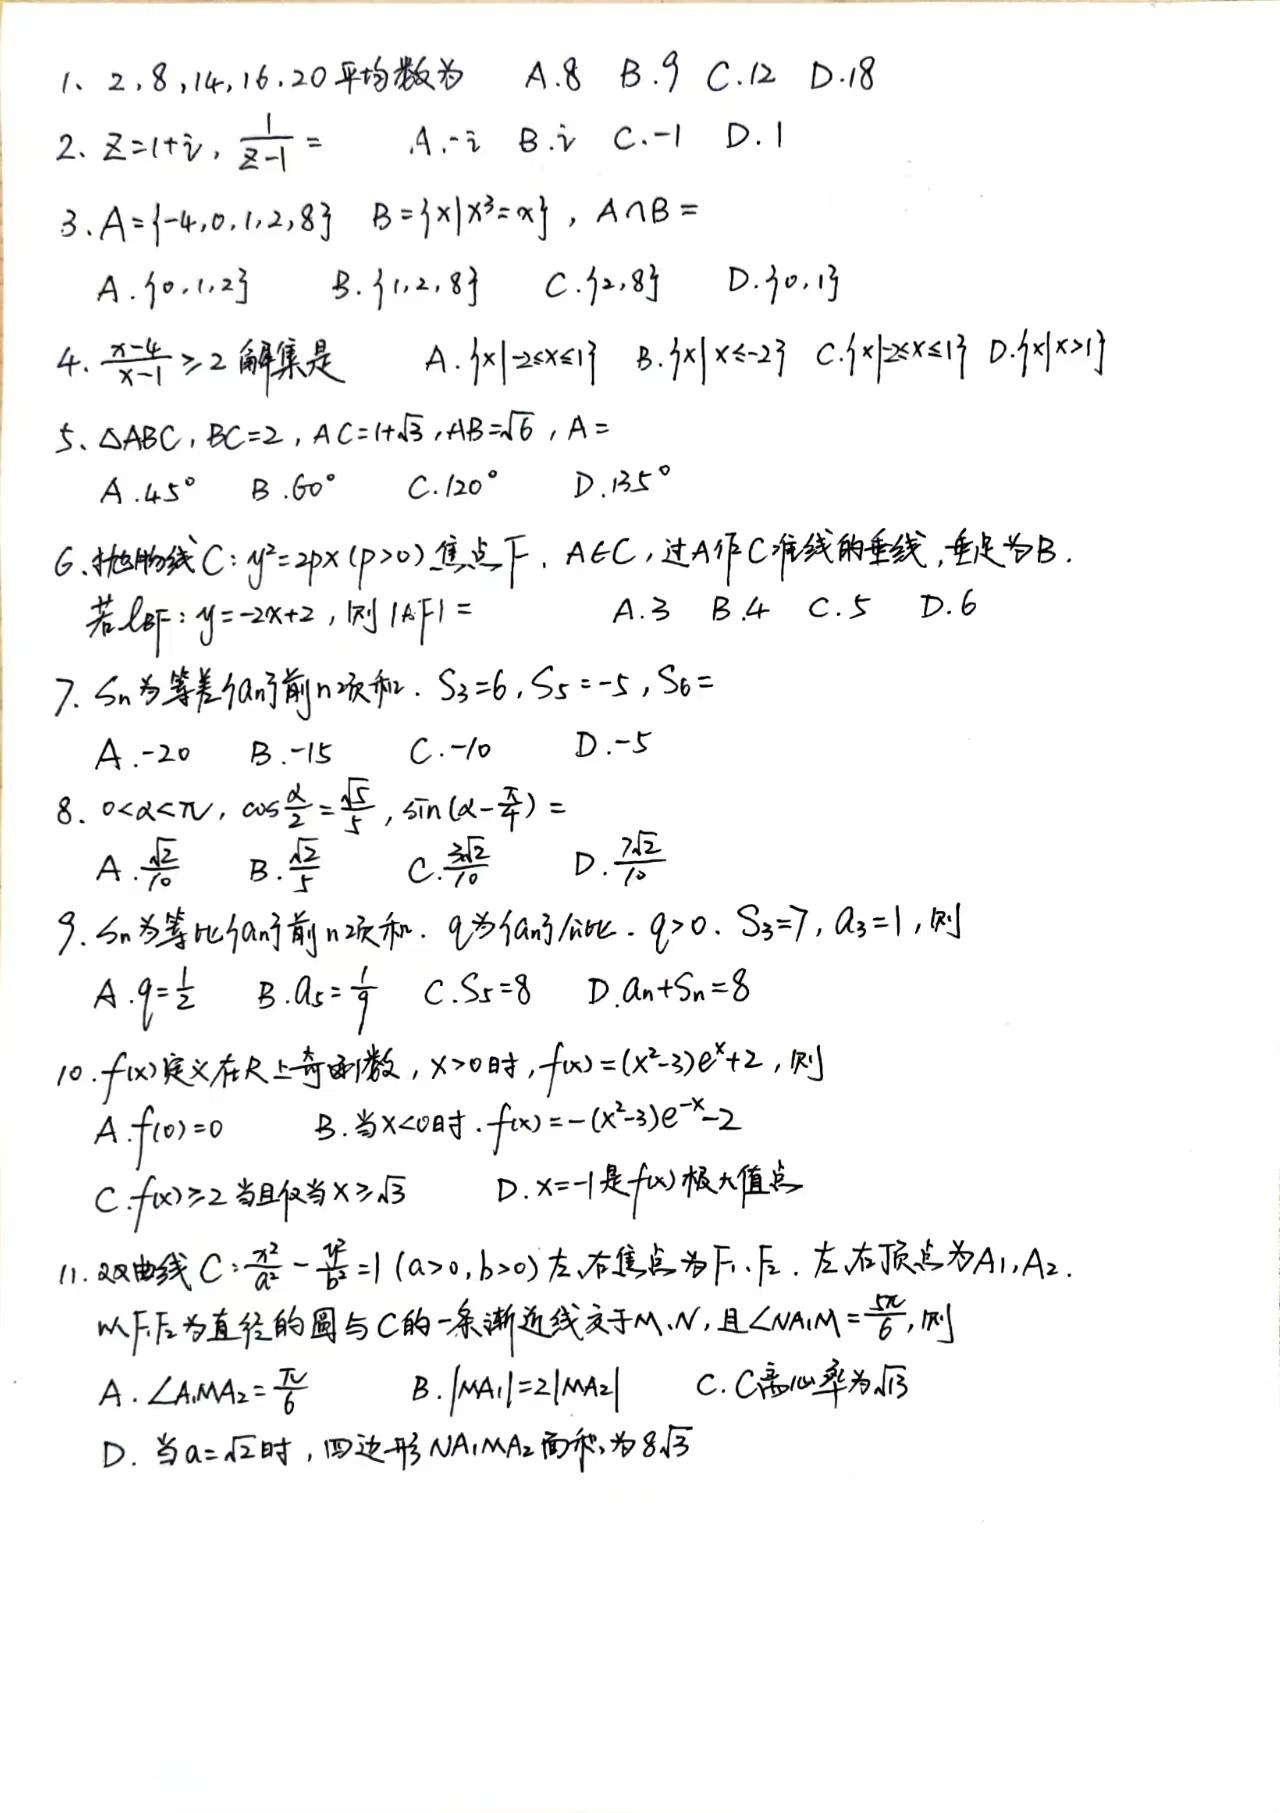 1、2,8,14,16.20平均数为 A.8 B.9 C.12 D.18
2、Z=1+i, 1/(Z-1) = A.-i B.i C.-1 D.1
3.A={-4,0,1,2,8} B={x|x³=x}, A∩B=
A.{0,1,2} B.{1,2,8} C.{2,8} D.{0,1}
4. (x-4)/(x-1) ≥2 解集是 A.{x|-2≤x≤1} B.{x|x≤-2} C.{x|-2≤x≤1} D.{x|x>1}
5、△ABC, BC=2, AC=1+√3, AB=√6, A=
A.45° B.60° C.120° D.135°
6.抛物线C:y²=2px(p>0)焦点F. A∈C,过A作C准线的垂线,垂足为B.
若l_BF:y=-2x+2,则|AF|= A.3 B.4 C.5 D.6
7. Sn为等差{an}前n项和. S₃=6, S₅=-5, S₆=
A.-20 B.-15 C.-10 D.-5
8. 0<α<π, cos α/2 = √5/5, sin(α-π/4) =
A.√2/10 B.√2/5 C.3√2/10 D.7√2/10
9. Sn为等比{an}前n项和. q为{an}公比. q>0. S₃=7, a₃=1,则
A.q=1/2 B.a₅=1/9 C.S₅=8 D.an+Sn=8
10.f(x)定义在R上奇函数, x>0时, f(x)=(x²-3)eˣ+2,则
A.f(0)=0 B.当x<0时.f(x)=-(x²-3)e⁻ˣ-2
C.f(x)≥2当且仅当x≥√3 D.x=-1是f(x)极大值点
11.双曲线C: x²/a² - y²/b² =1 (a>0,b>0)左,右焦点为F₁.F₂. 左,右顶点为A₁,A₂.
以F₁F₂为直径的圆与C的一条渐近线交于M.N,且∠NA₁M=5π/6,则
A.∠A₁MA₂=π/6 B.|MA₁|=2|MA₂| C.C离心率为√13
D. 当a=√2时,四边形NA₁MA₂面积为8√3